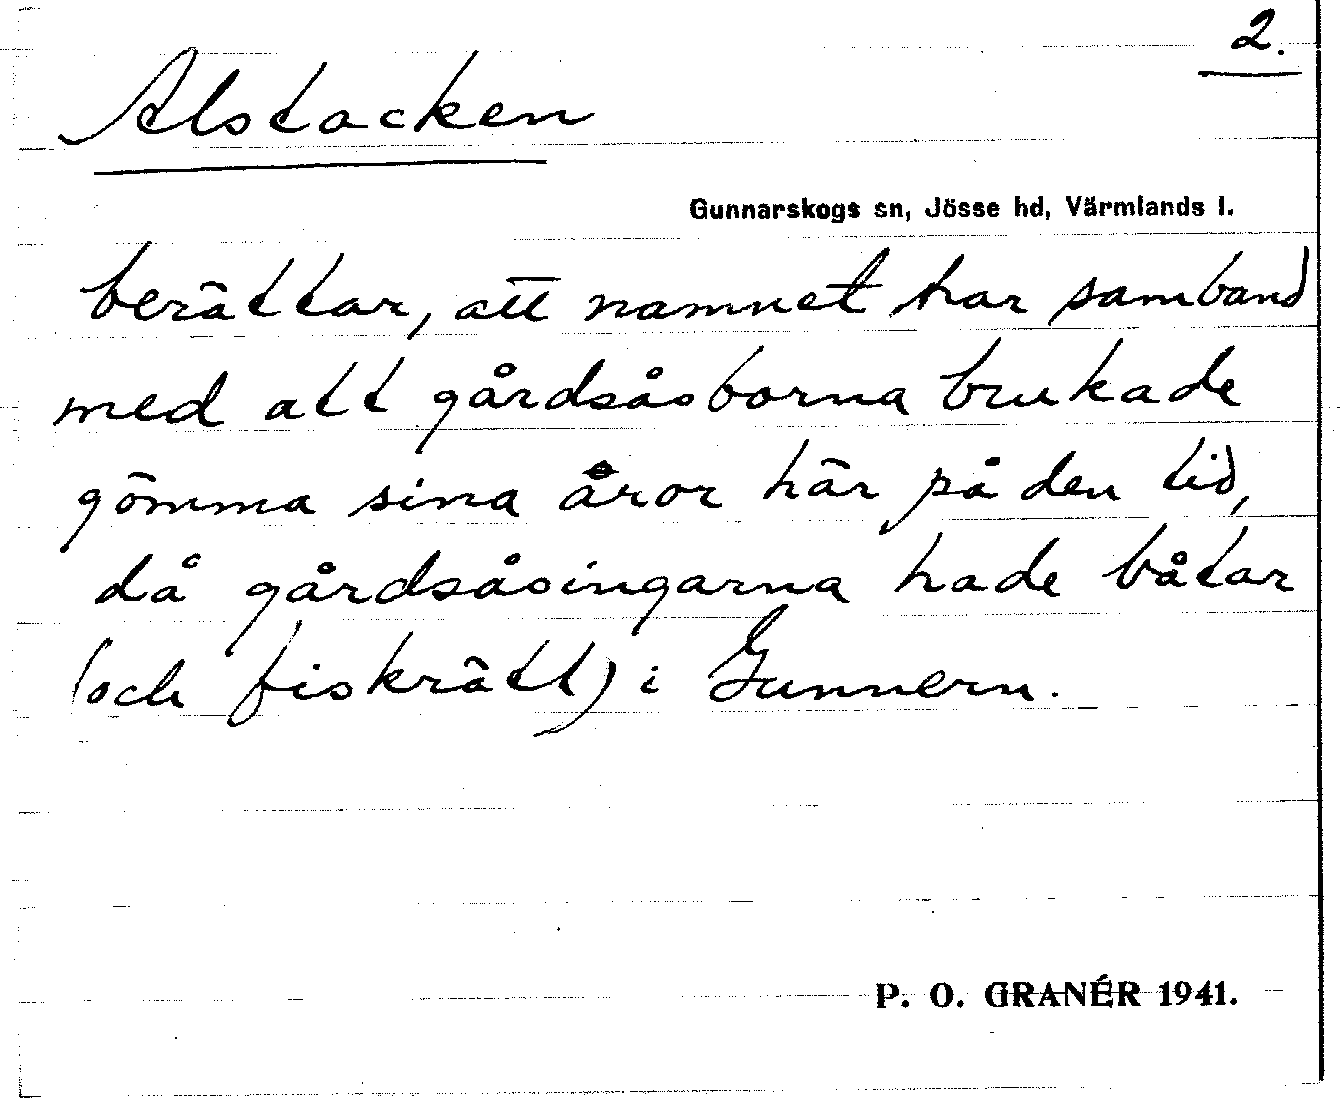 2.
Alstacken
Gunnarskogs sn, Jösse hd, Värmlands l.
berättar, att namnet har samband
med att gårdsåsborna brukade
gömma sina åror här på den tid,
då gårdsåsingarna hade båtar
(och fiskrätt) i Gunnern.
P. O. GRANÉR 1941.